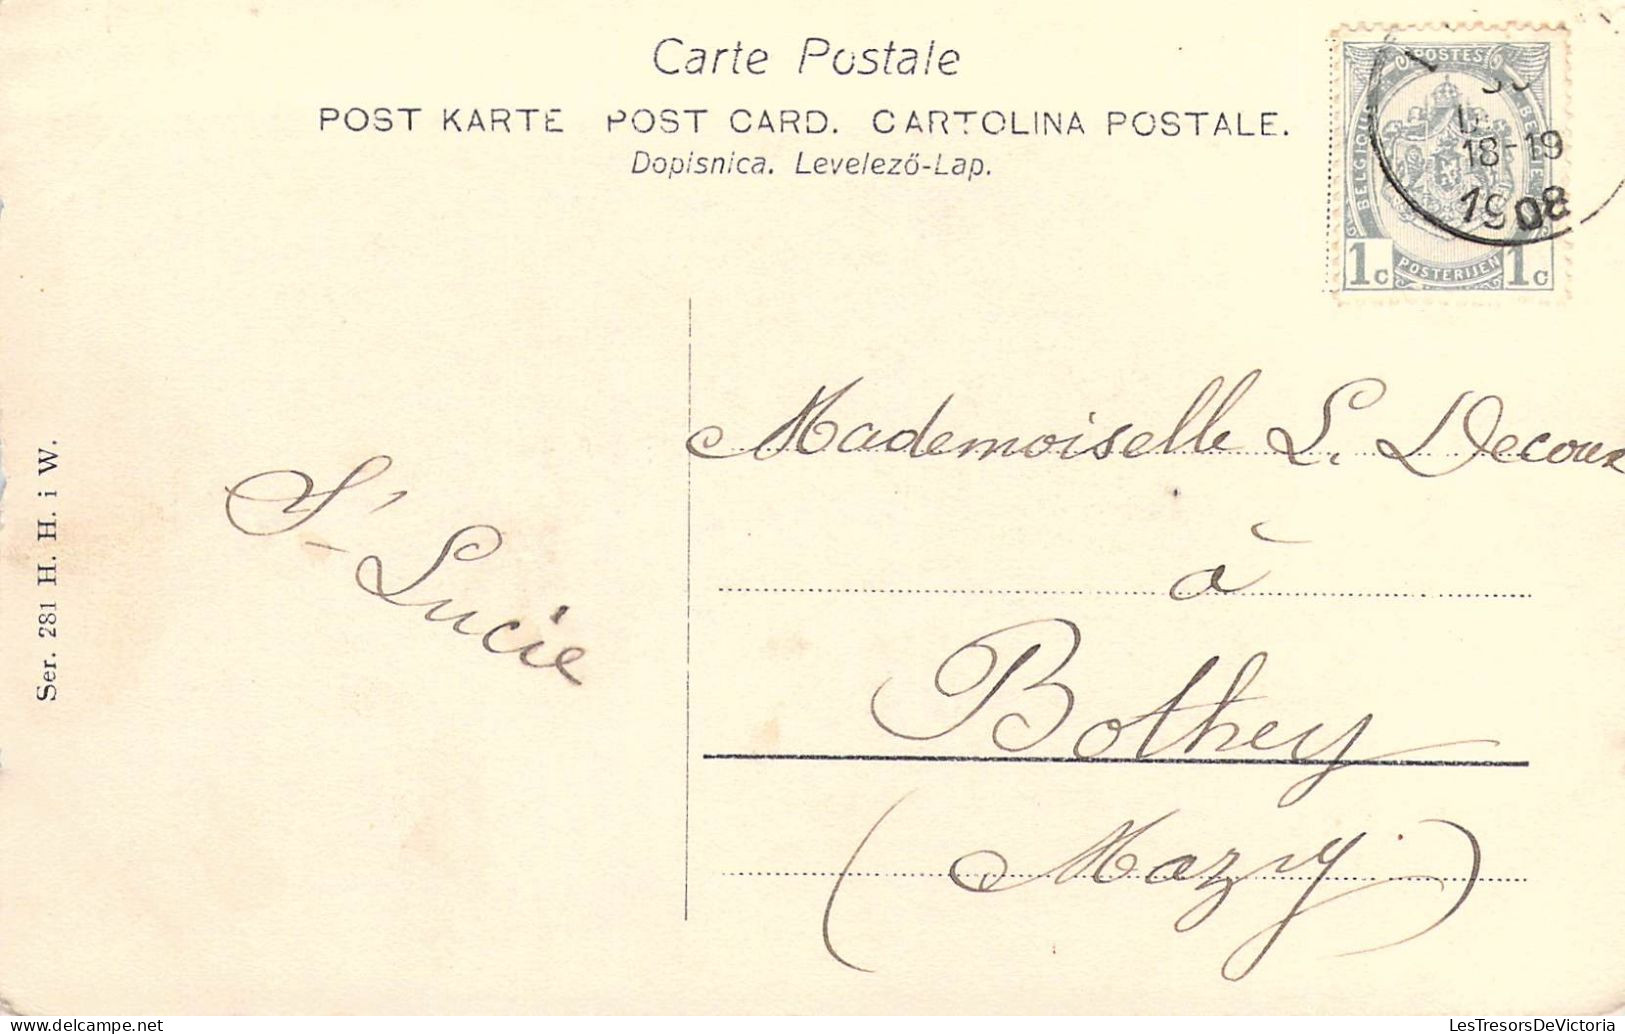 Carte Postale
POST KARTE POST CARD. CARTOLINA POSTALE.
Dopisnica. Levelező-Lap.
POSTES
BELGIQUE
POSTERIJEN
1c 1c
18-19
1908
Mademoiselle L. Decoux
à
Bothey
(Mazy)
Ste Lucie
Ser. 281 H. H. i W.
LesTresorsDeVictoria